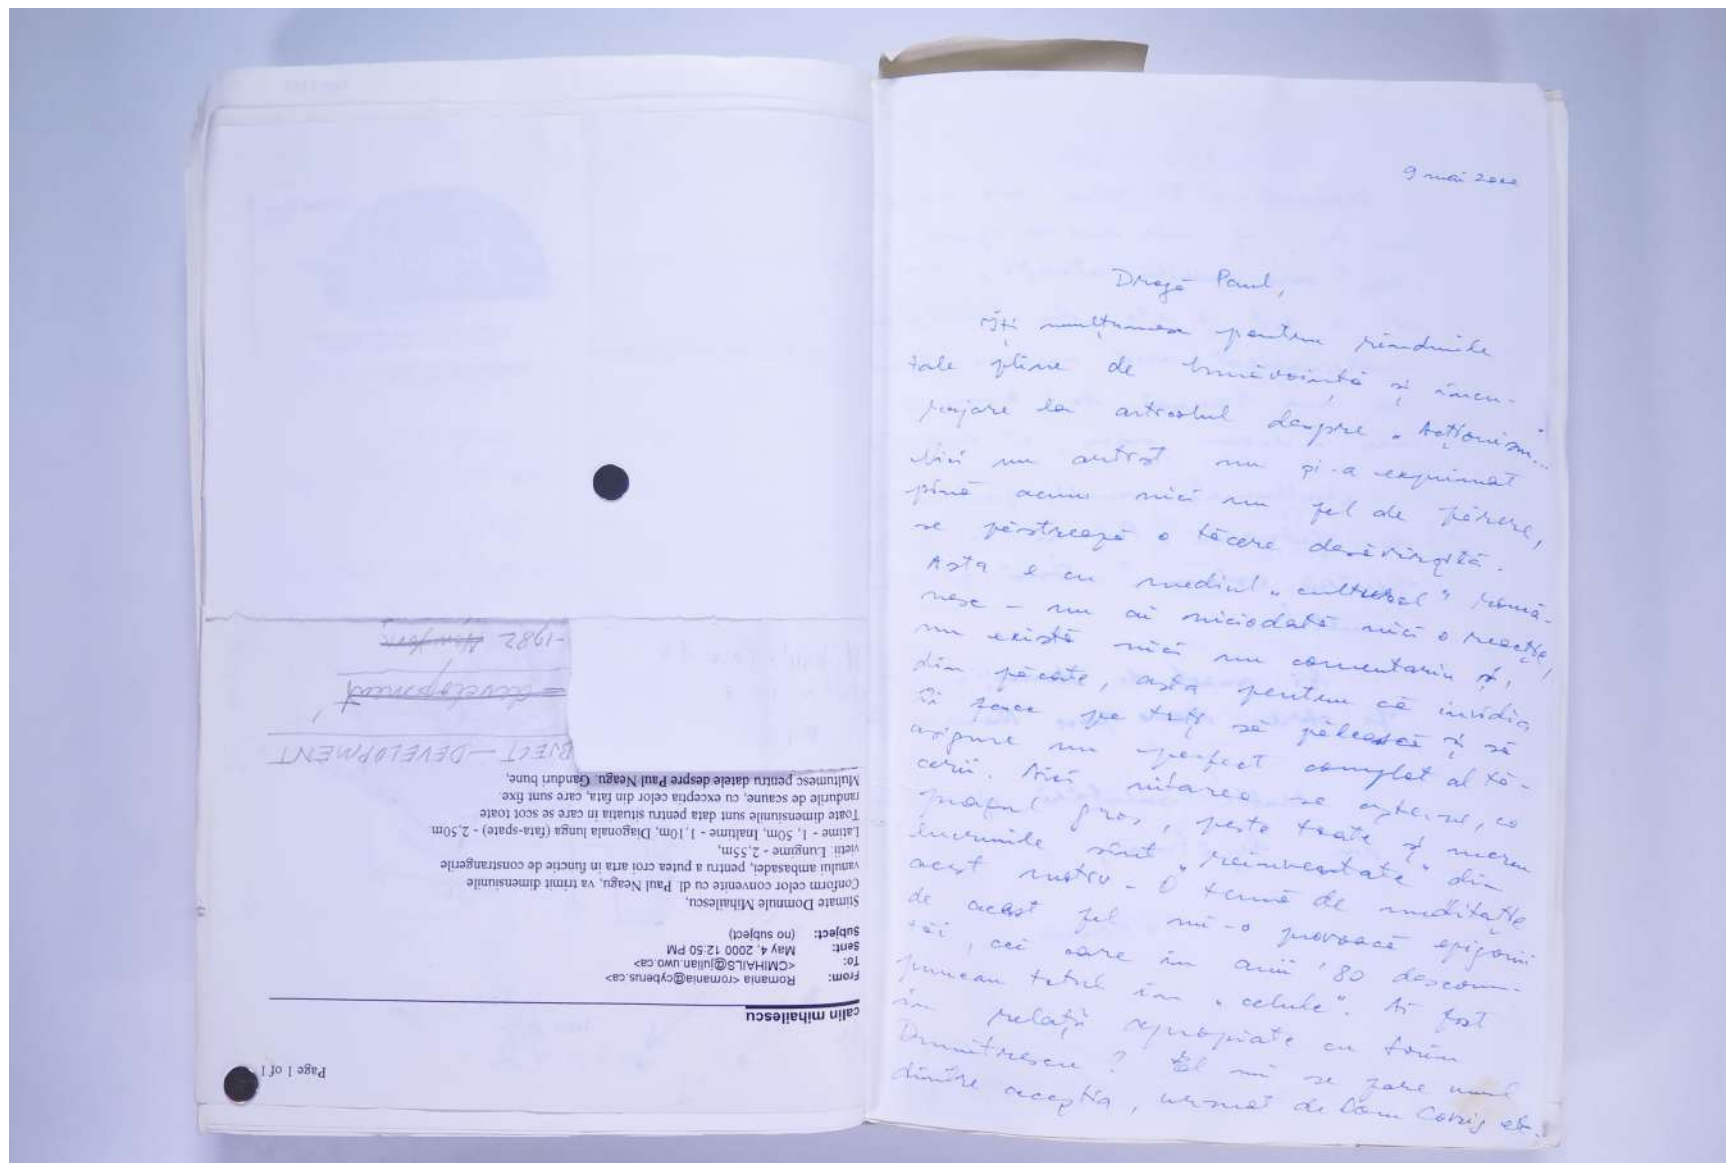 Page 1 of 1
calin mihailescu
From: Romania <romania@cyberus.ca>
To: <CMIHAILS@julian.uwo.ca>
Sent: May 4, 2000 12:50 PM
Subject: (no subject)
Stimate Domnule Mihailescu,
Conform celor convenite cu dl. Paul Neagu, va trimit dimensiunile
vanului ambasadei, pentru a putea croi arta in functie de constrangerile
vietii: Lungime - 2,55m,
Latime - 1, 50m, Inaltime - 1,10m, Diagonala lunga (fata-spate) - 2,50m
Toate dimensiunile sunt data pentru situatia in care se scot toate
randurile de scaune, cu exceptia celor din fata, care sunt fixe.
Multumesc pentru datele despre Paul Neagu. Ganduri bune,
BJECT — DEVELOPMENT
= development
-1982 New York
9 mai 2000
Dragă Paul,
Îți mulțumesc pentru rîndurile
tale pline de bunăvoință și încu-
rajare la articolul despre "Acționism"...
Nici un artist nu și-a exprimat
pînă acum nici un fel de părere,
se păstrează o tăcere desăvîrșită.
Asta e cu mediul "cultural" româ-
nesc - nu ai niciodată nici o reacție,
nu există nici un comentariu și,
din păcate, asta pentru că invidia
îi face pe toți să pălească și să
asigure un perfect complot al tă-
cerii. Nici uitarea se așterne, ca
praful gros, peste toate și mereu
lucrurile sînt "reinventate" din
acest motiv - O temă de meditație
de acest fel mi-o provoacă epigonii
tăi, cei care în anii '80 descom-
puneau totul în "celule". Ai fost
în relații apropiate cu Sorin
Dumitrescu? El mi se pare unul
dintre aceștia, urmat de